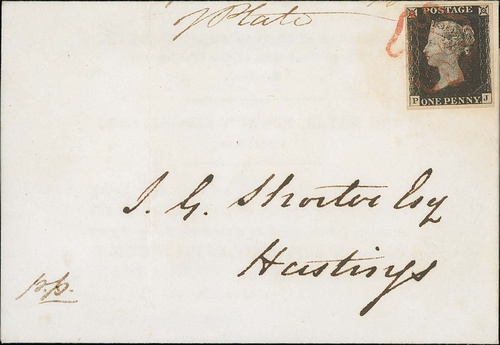 of Plate
POSTAGE
P J
ONE PENNY
J. G. Shorter Esq
Hastings
p.p.